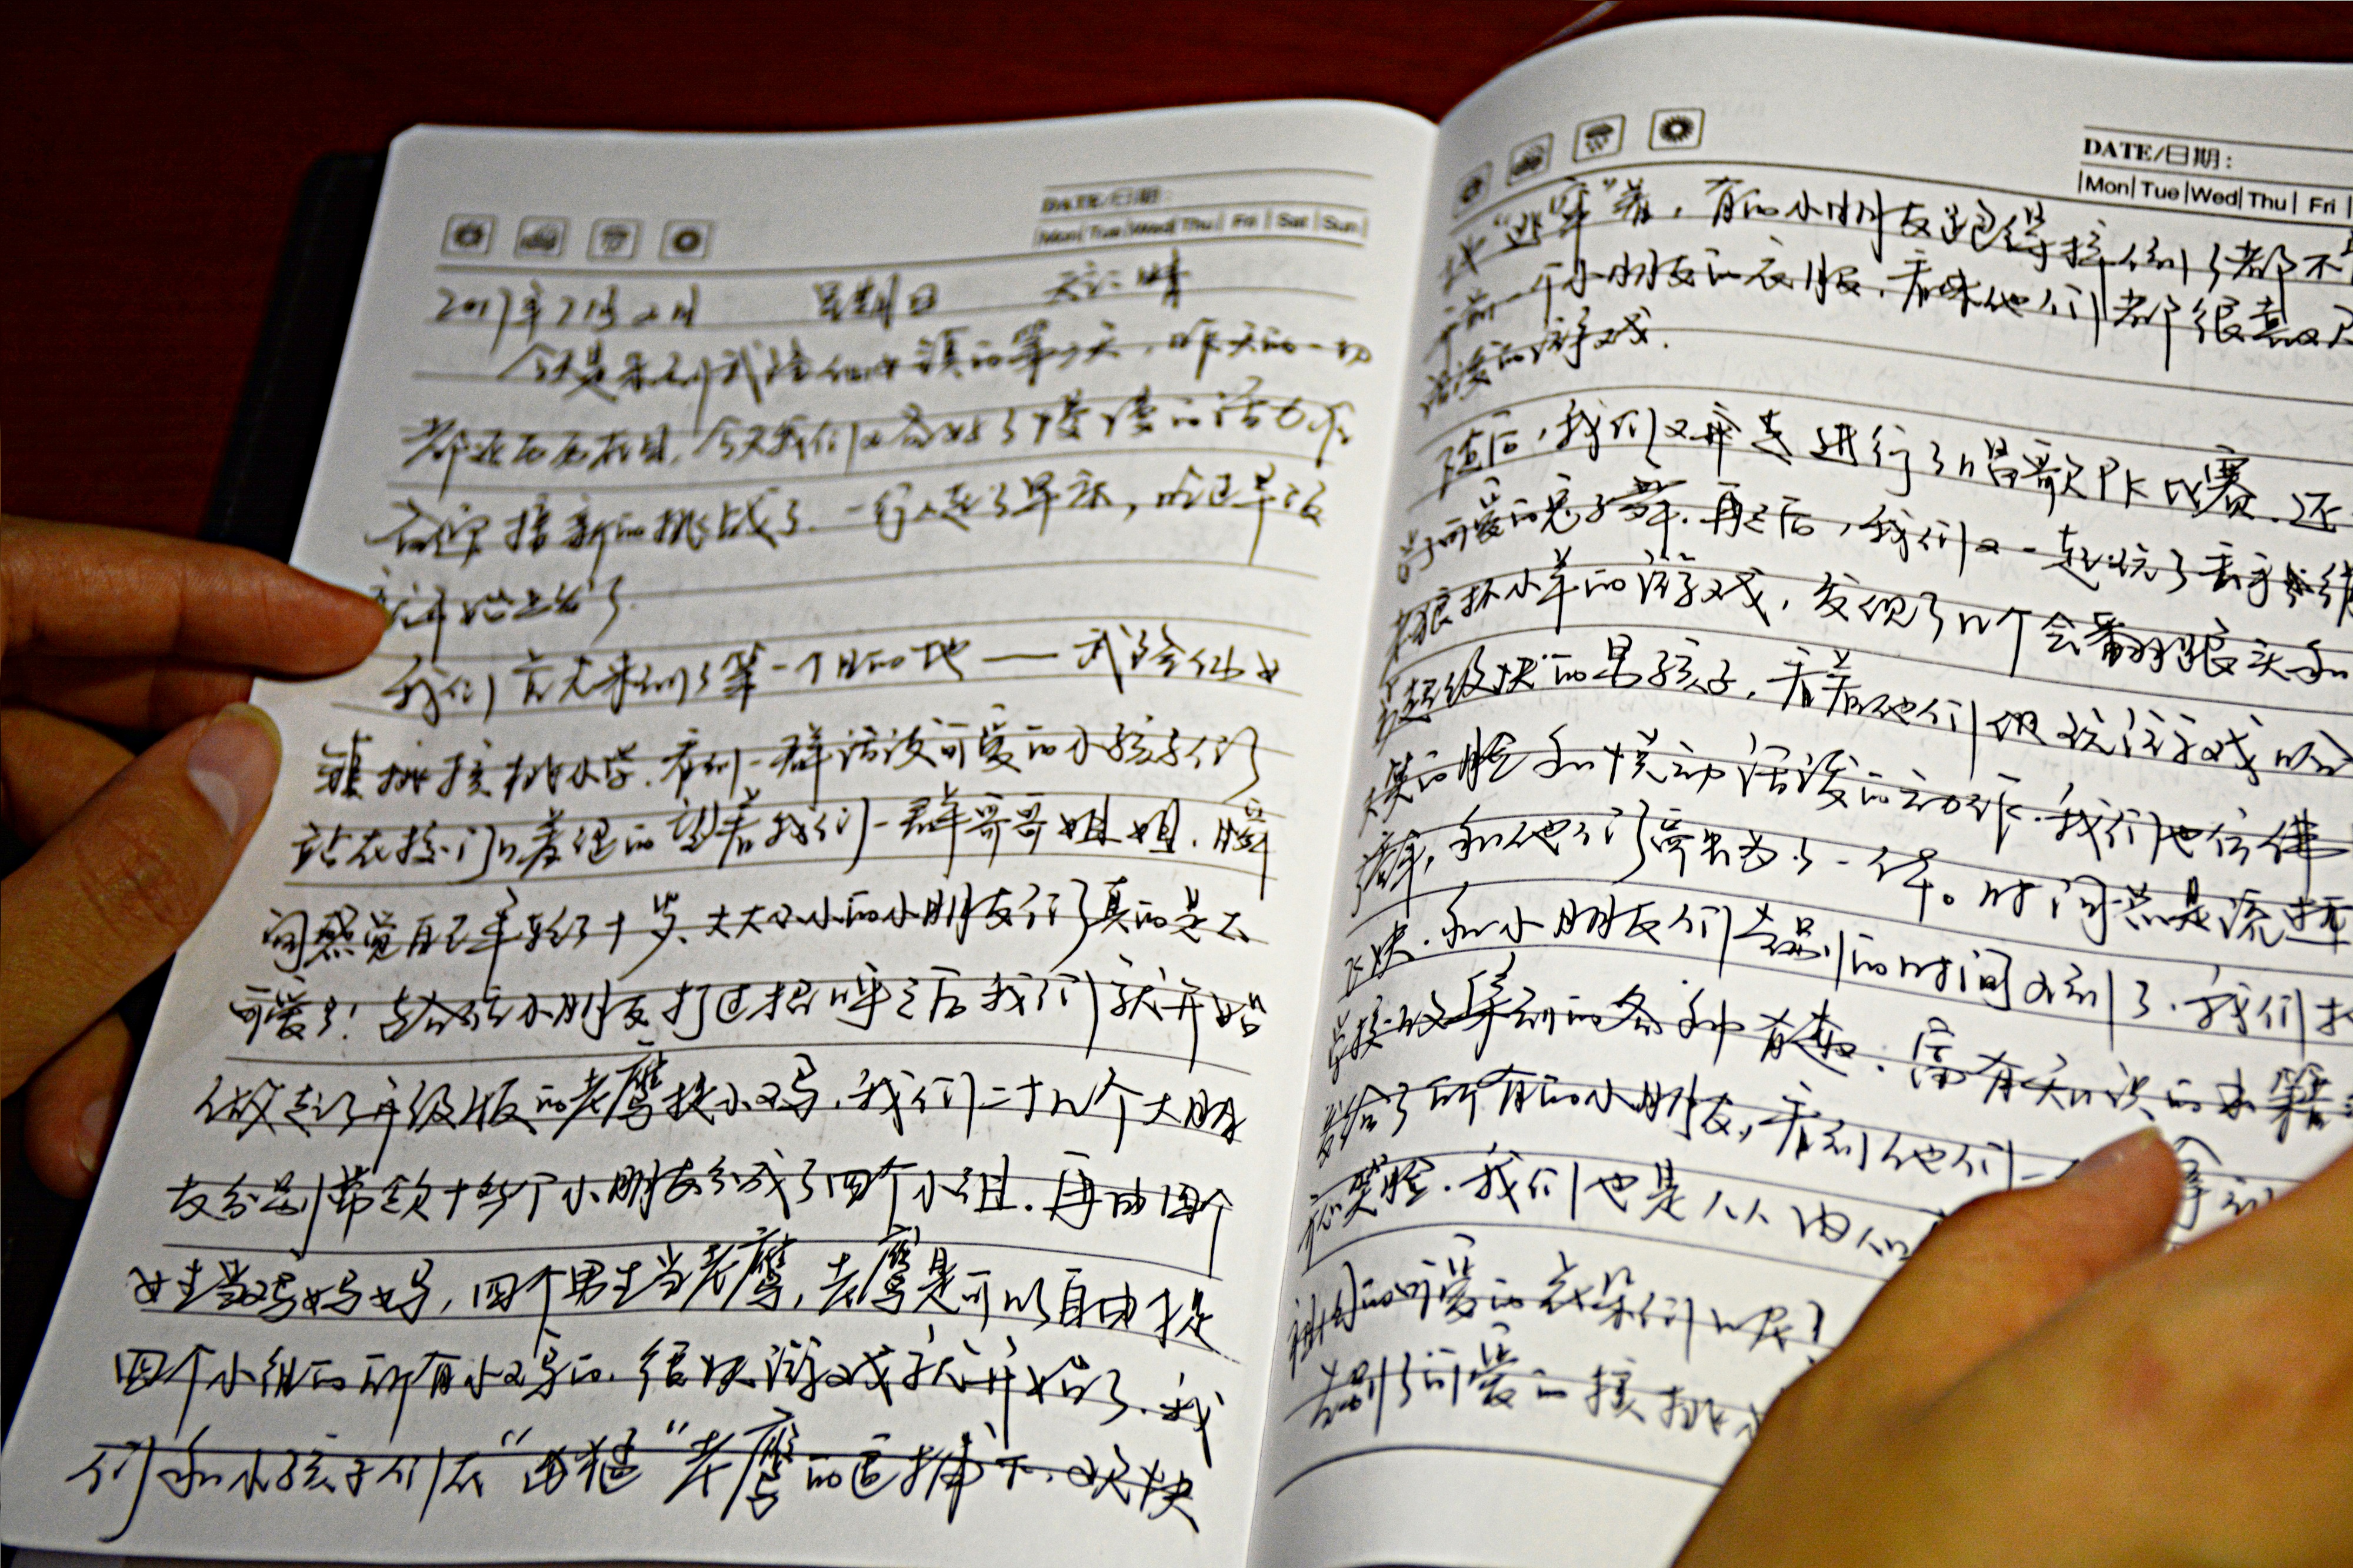 DATE/日期:
Mon Tue Wed Thu Fri Sat Sun
2017年7月2日 星期日 天气:晴
今天是来到武陟仙女镇的第二天，昨天的一切
都还历历在目，今天我们又
去迎接新的挑战了.一行人起了早床，吃过早饭
就开始出发了.
我们首先来到了第一个目的地——武陟仙女
镇桃核桃小学.看到一群活泼可爱的小孩子们
站在校门口羞涩的望着我们一群哥哥姐姐.瞬
间感觉自己年轻了十岁.大大小小的小朋友们真的是太
可爱了!给小朋友打过招呼之后我们就开始
做起了升级版的老鹰捉小鸡.我们二十几个大朋
友分别带领十几个小朋友分成了四个小组.再由四个
女生当鸡妈妈,四个男生当老鹰,老鹰是可以自由捉
四个小组的所有小鸡的.很快游戏就开始了.我
们和小孩子们在"凶猛"老鹰的追捕下.欢快
DATE/日期:
Mon Tue Wed Thu Fri
地"逃窜"着,有的小朋友跑得摔倒了都不
前一个小朋友的衣服,看来他们都很喜欢
活泼的游戏.
随后,我们又齐走进行了唱歌PK比赛.还
学可爱的兔子舞.再之后,我们又一起玩了丢手绢
老狼抓小羊的游戏,发现了几个会翻跟头和
超级快的男孩子,看着他们做玩游戏时
大笑的脸和悦动活泼的动作.我们也仿佛
和他们融为了一体。时间总是流逝
飞快.和小朋友们告别的时间又到了.我们把
学校收集到的各种有趣.富有知识的书籍
发给了所有的小朋友,看到他们一
笑脸.我们也是从内心
祖国的可爱的花朵们呢?
告别了可爱的核桃